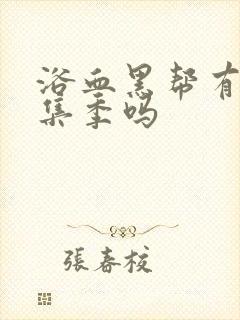 浴血黑帮有
集季吗
張春校